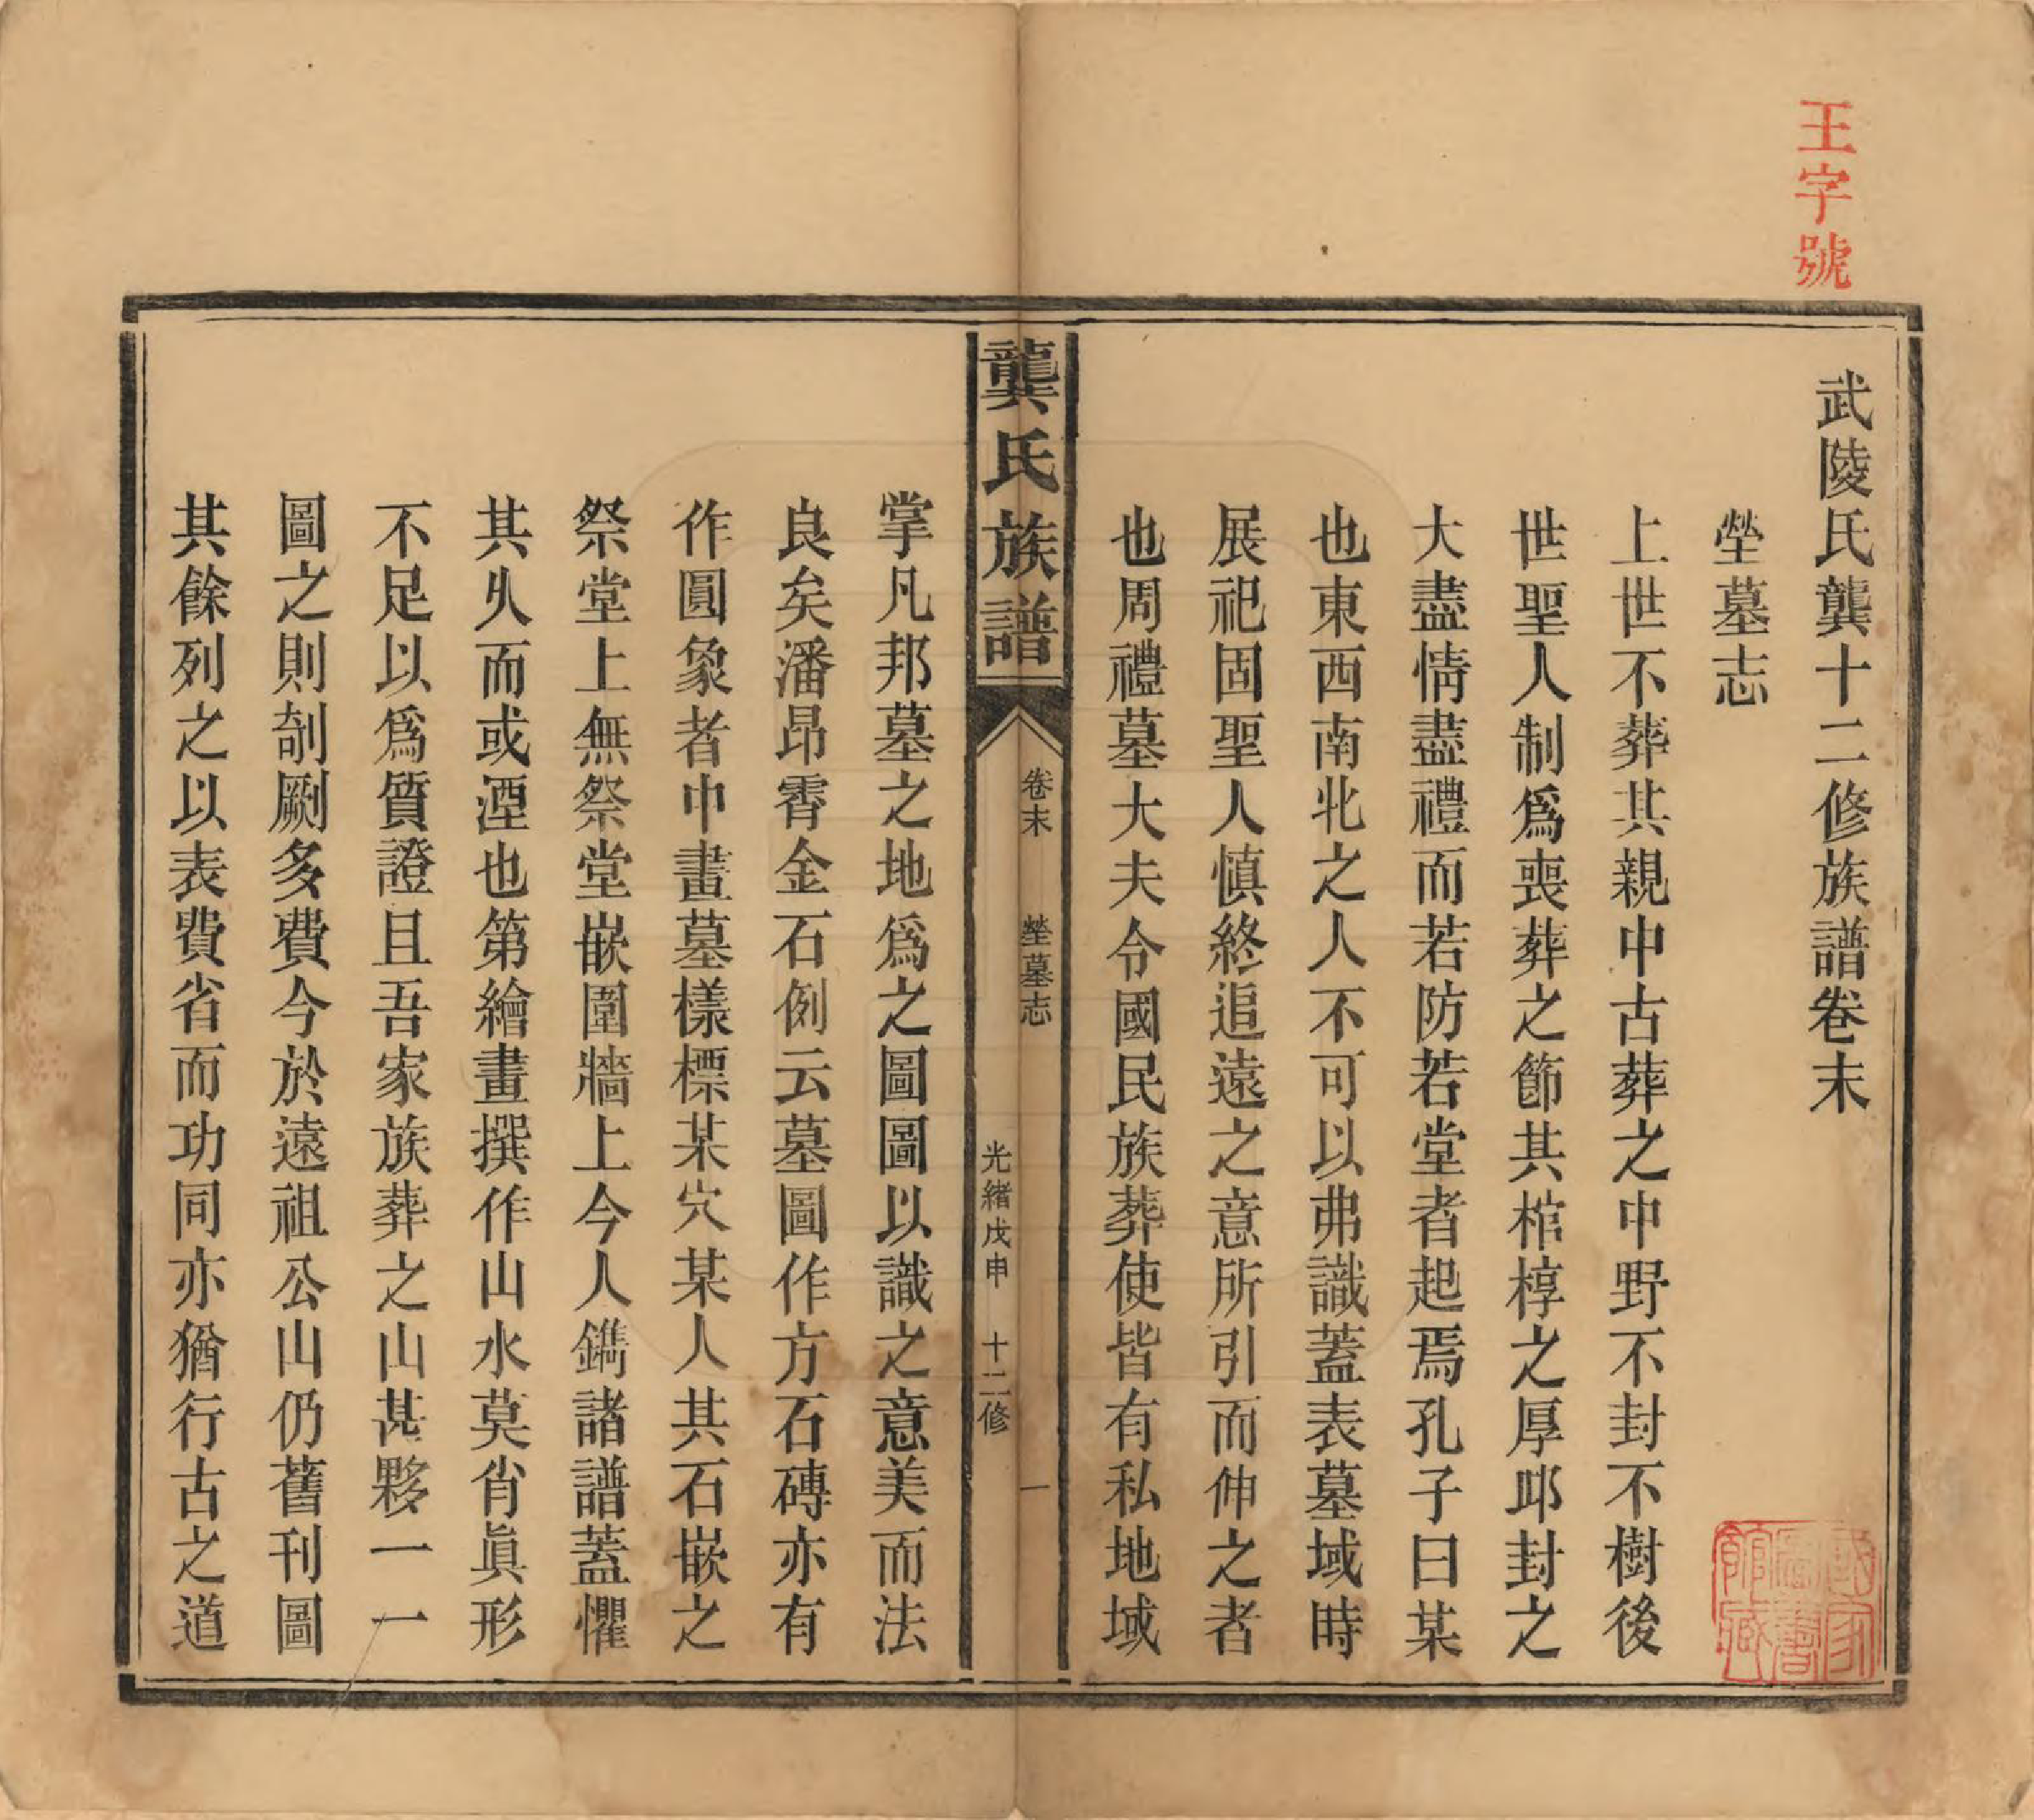 王字號
武陵氏龔十二修族譜卷末
塋墓志
上世不葬其親中古葬之中野不封不樹後
世聖人制爲喪葬之節其棺椁之厚邱封之
大盡情盡禮而若防若堂者起焉孔子曰某
也東西南北之人不可以弗識蓋表墓域時
展祀固聖人慎終追遠之意所引而伸之者
也周禮墓大夫令國民族葬使皆有私地域
龔氏族譜
卷末 塋墓志 一
光緒戊申 十二修
掌凡邦墓之地爲之圖圖以識之意美而法
良矣潘昂霄金石例云墓圖作方石磚亦有
作圓象者中畫墓樣標某穴某人其石嵌之
祭堂上無祭堂嵌圍牆上今人鐫諸譜蓋懼
其乆而或湮也第繪畫撰作山水莫肖眞形
不足以爲質證且吾家族葬之山甚夥一一
圖之則剞劂多費今於遠祖公山仍舊刊圖
其餘列之以表費省而功同亦猶行古之道
國家圖書館藏